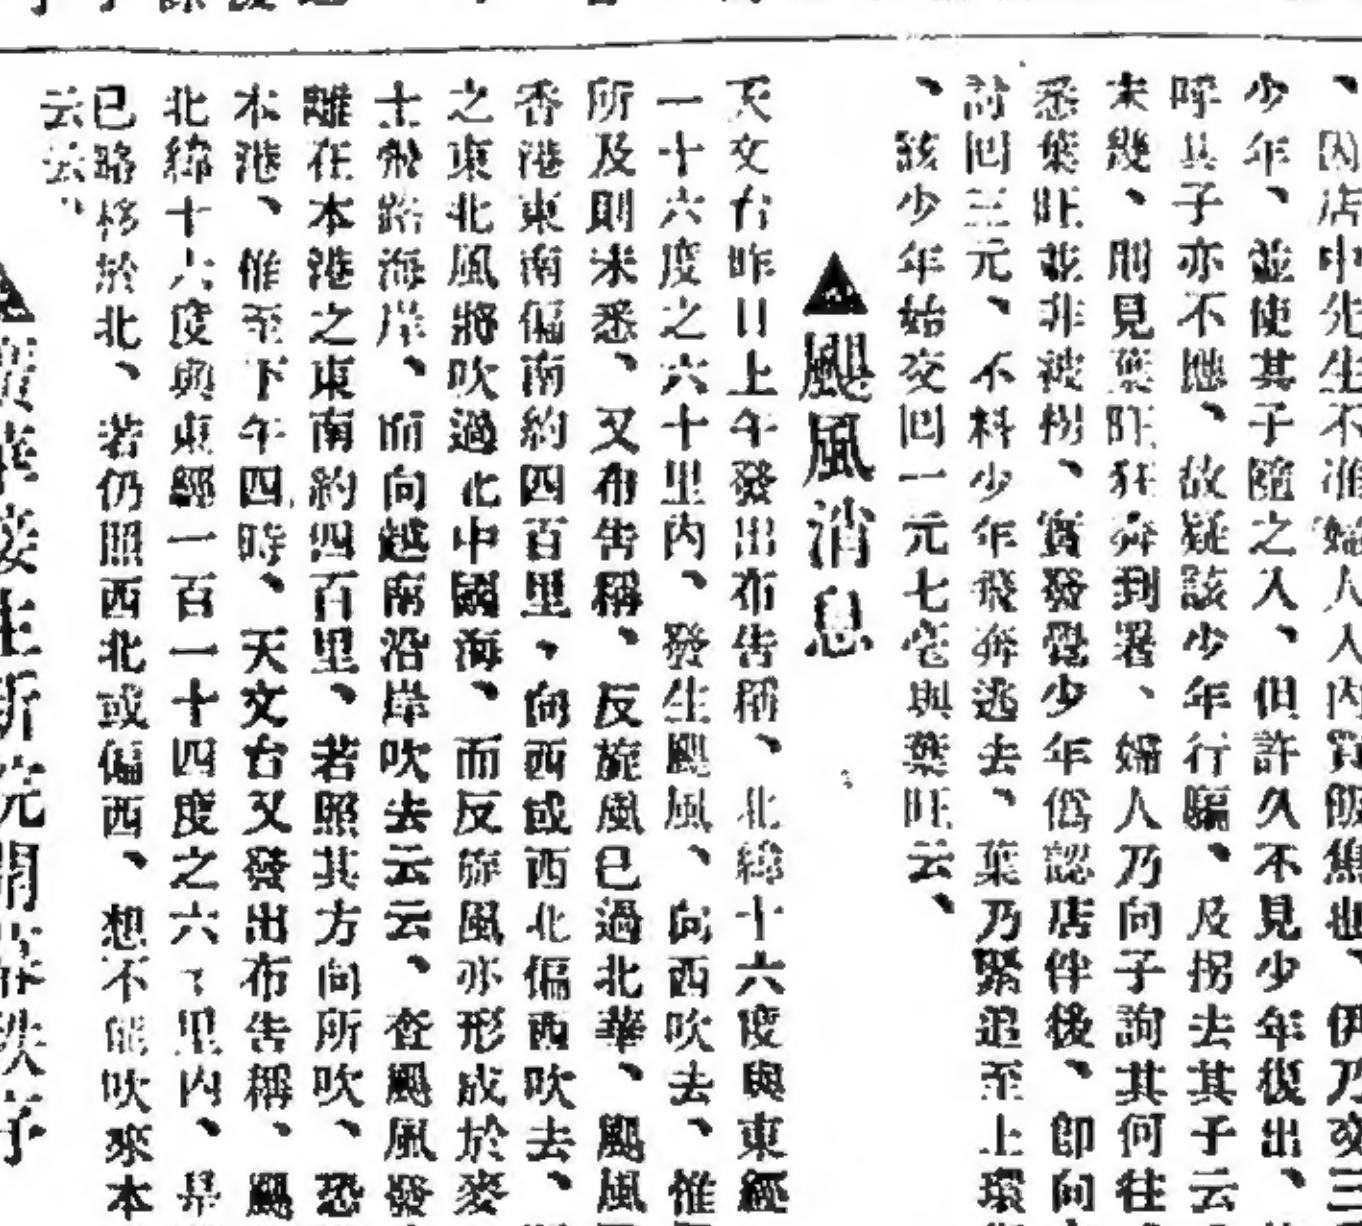 、因店中先生不准婦人入內買飯焦也、伊乃交三
少年、並使其子隨之入、但許久不見少年復出、
呼其子亦不應、故疑該少年行騙、及拐去其子云
未幾、則見葉旺狂奔到署、婦人乃向子詢其何往
悉葉旺並非被拐、實發覺少年僞認店伴後、卽向
討囘三元、不料少年飛奔逃去、葉乃緊追至上環
、該少年始交囘一元七毫與葉旺云、
▲颶風消息
天文台昨日上午發出布告稱、北緯十六度與東經
一十六度之六十里內、發生颶風、向西吹去、惟
所及則未悉、又布告稱、反旋風已過北華、颶風
香港東南偏南約四百里、向西或西北偏西吹去、
之東北風將吹過北中國海、而反旋風亦形成於麥
士飛路海岸、而向越南沿岸吹去云云、查颶風發
離在本港之東南約四百里、若照其方向所吹、恐
本港、惟至下午四時、天文台又發出布告稱、颶
北緯十六度與東經一百一十四度之六十里內、是
已略移於北、若仍照西北或偏西、想不能吹來本
云云、